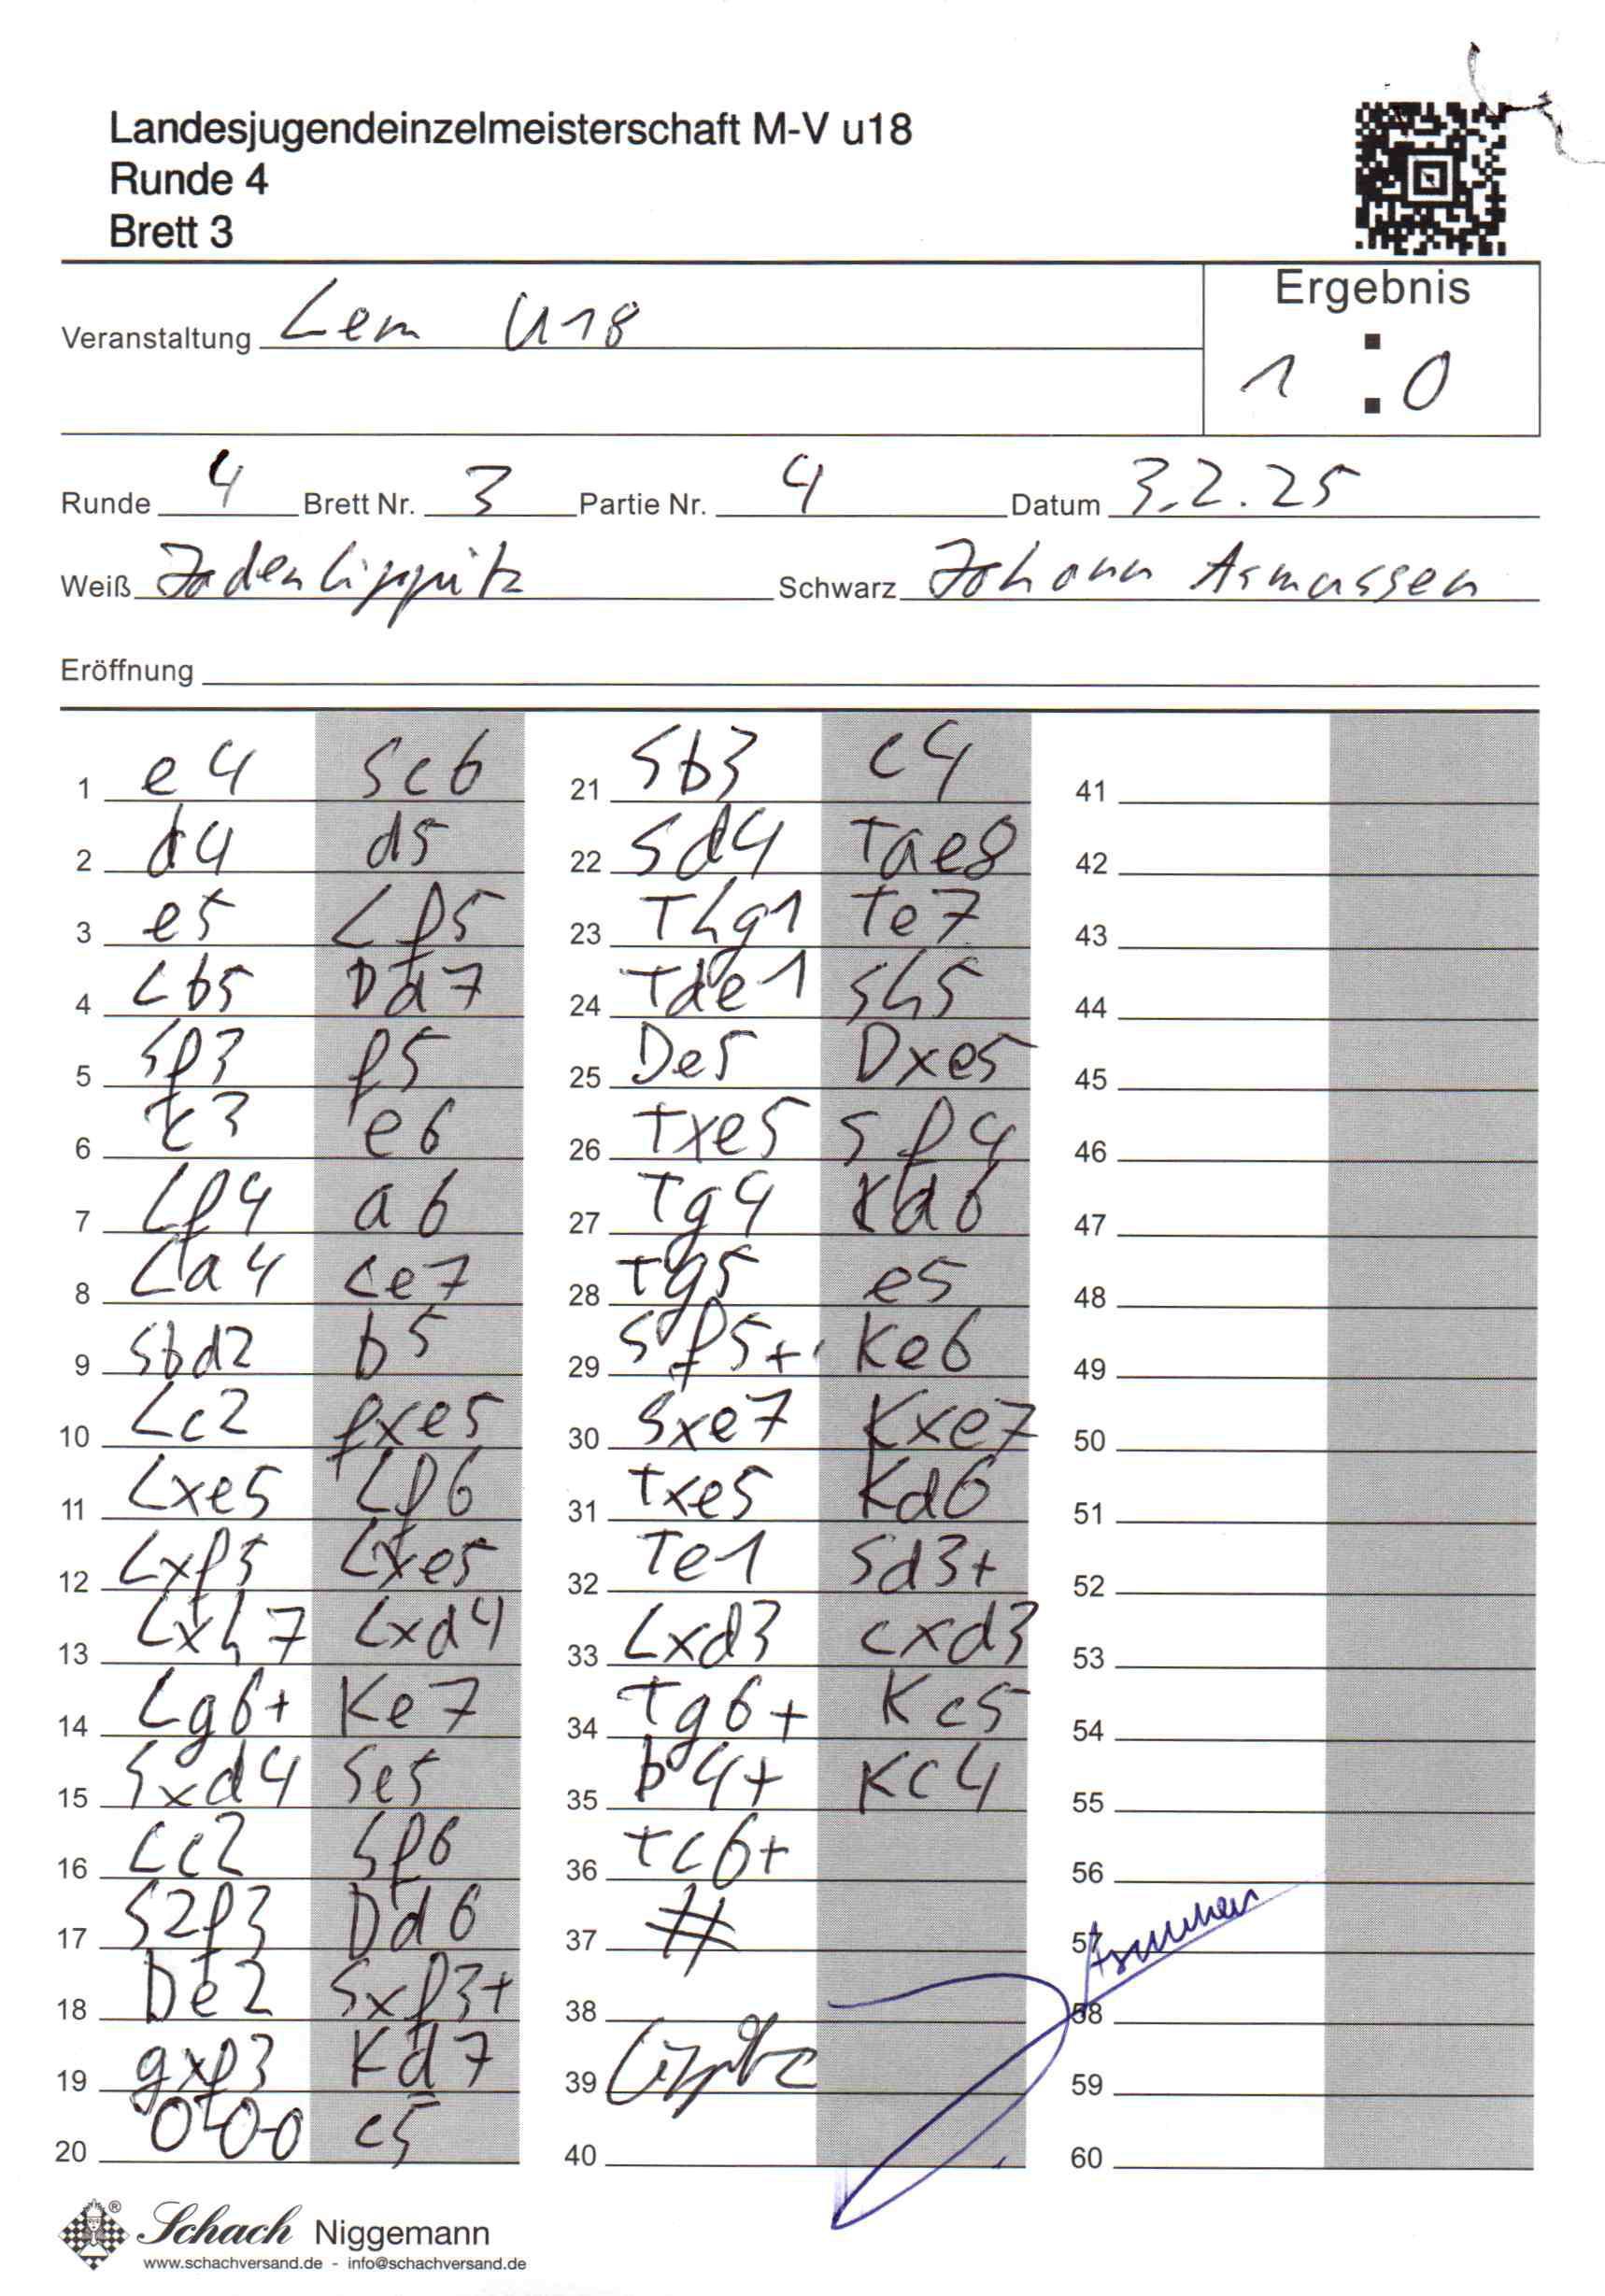 Landesjugendeinzelmeisterschaft M-V u18
Runde 4
Brett 3
Ergebnis
Veranstaltung Lem U18
1 : 0
Runde 4 Brett Nr. 3 Partie Nr. 4 Datum 3.2.25
Weiß Jaden Lippitz Schwarz Johann Asmussen
Eröffnung
1 e4 Sc6
2 d4 d5
3 e5 Lf5
4 Lb5 Dd7
5 Sf3 f5
6 c3 e6
7 Lf4 a6
8 La4 Le7
9 Sbd2 b5
10 Lc2 fxe5
11 Lxe5 Lf6
12 Lxf5 Lxe5
13 Lxh7 Lxd4
14 Lg6+ Ke7
15 Sxd4 Se5
16 Lc2 Sf6
17 S2f3 Dd6
18 De2 Sxf3+
19 gxf3 Kd7
20 0-0-0 c5
21 Sb3 c4
22 Sd4 Tae8
23 Thg1 Te7
24 Tde1 Sh5
25 De5 Dxe5
26 Txe5 Sf4
27 Tg4 Kd6
28 Tg5 e5
29 Sf5+ Ke6
30 Sxe7 Kxe7
31 Txe5 Kd6
32 Te1 Sd3+
33 Lxd3 cxd3
34 Tg6+ Kc5
35 b4+ Kc4
36 Tc6+
37 #
38
39 Lippitz
40
41
42
43
44
45
46
47
48
49
50
51
52
53
54
55
56
57 Asmussen
58
59
60
Schach Niggemann
www.schachversand.de - info@schachversand.de